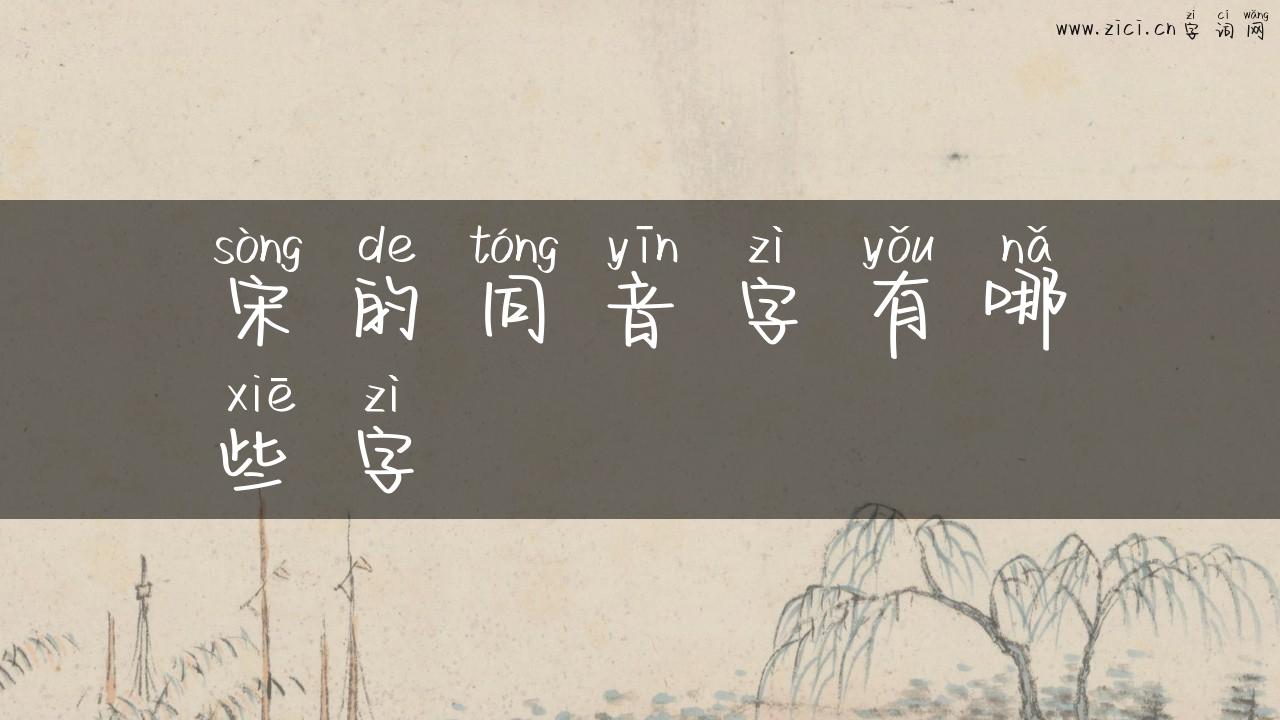 zì cí wǎng
www.zici.cn 字词网
sòng de tóng yīn zì yǒu nǎ
宋的同音字有哪
xiē zì
些字